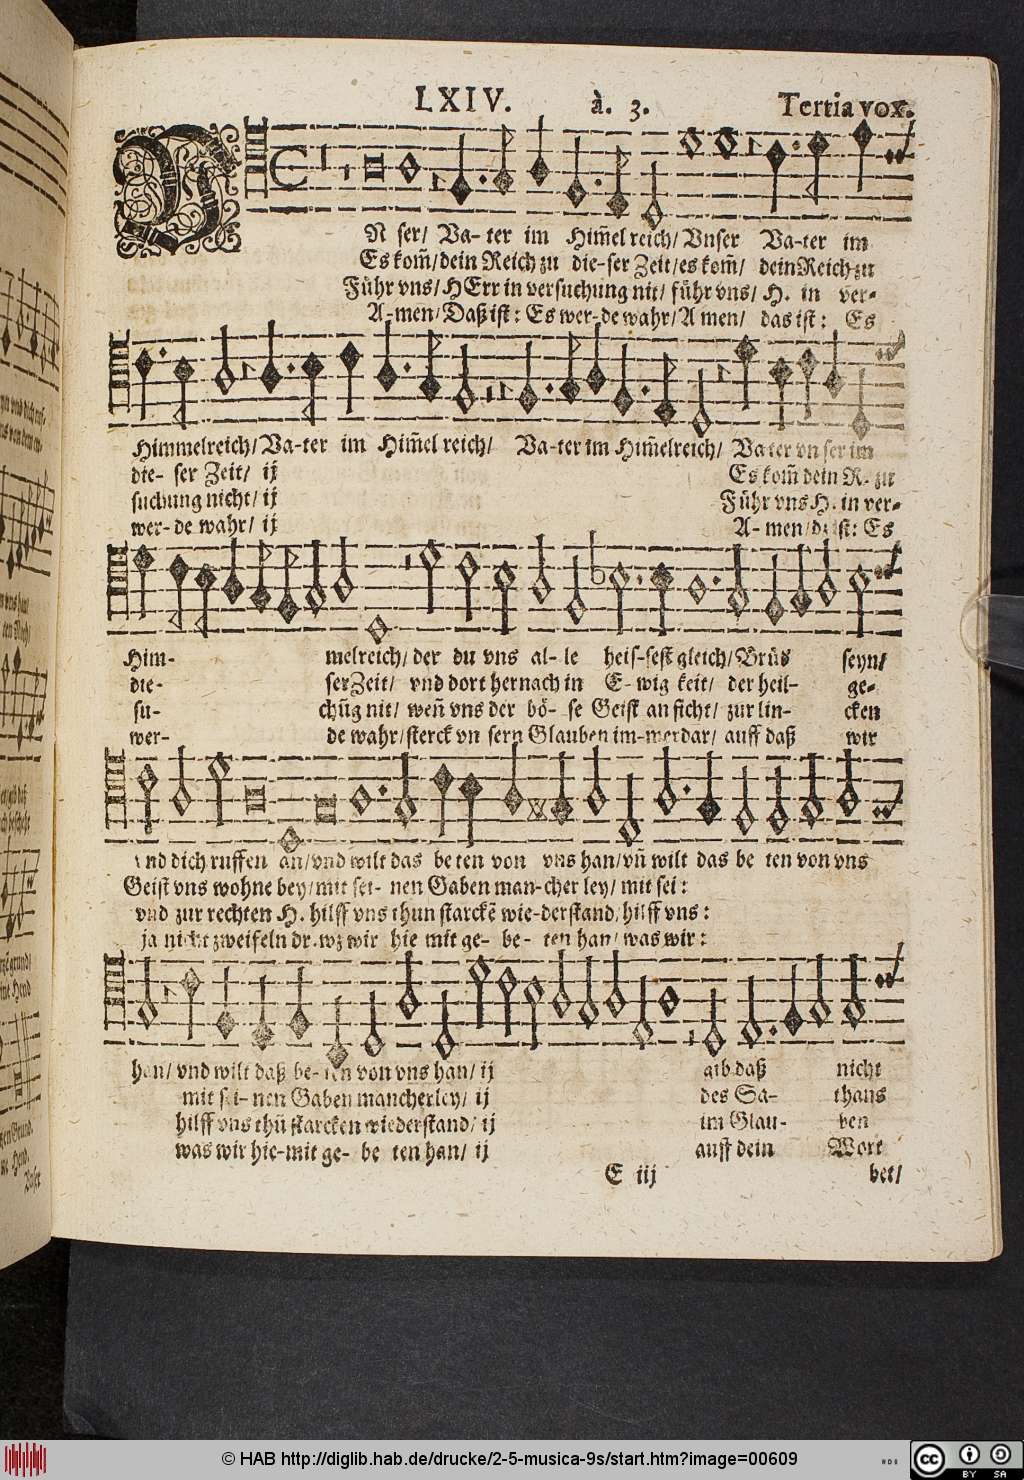 LXIV. à. 3. Tertia vox.
VN ser/ Va- ter im Him̃el reich/ Vnser Va-ter im
Es kom̃/ dein Reich zu die-ser Zeit/ es kom̃/ dein Reich zu
Führ vns/ HErr in versuchung nit/ führ vns/ H. in ver-
A-men/ Daß ist: Es wer-de wahr/ A men/ das ist: Es
Himmelreich/ Va-ter im Him̃el reich/ Va-ter im Him̃elreich/ Va ter vn ser im
die- ser Zeit/ ij Es kom̃ dein R. zu
suchung nicht/ ij Führ vns H. in ver-
wer-de wahr/ ij A- men/ ist: Es
Him- melreich/ der du vns al- le heis-sest gleich/ Brüd seyn/
die- ser Zeit/ vnd dort hernach in E- wig keit/ der heil- ge-
su- chūg nit/ weñ vns der bö- se Geist an ficht/ zur lin- cken
wer- de wahr/ sterck vn sern Glauben im-merdar/ auff daß wir
vnd dich ruffen an/ vnd wilt das be ten von vns han/ vñ wilt das be ten von vns
Geist vns wohne bey/ mit sei- nen Gaben man-cher ley/ mit sei:
vnd zur rechten H. hilff vns thun starckẽ wie-derstand/ hilff vns:
ja nicht zweifeln dr. wz wir hie mit ge- be- ten han/ was wir:
han/ vnd wilt daß be- ten von vns han/ ij gib daß nicht
mit sei- nen Gaben mancherley/ ij des Sa- thans
hilff vns thũ starcken wiederstand/ ij im Glau- ben
was wir hie-mit ge- be ten han/ ij auff dein Wort
E iij bet/
© HAB http://diglib.hab.de/drucke/2-5-musica-9s/start.htm?image=00609
cc BY SA